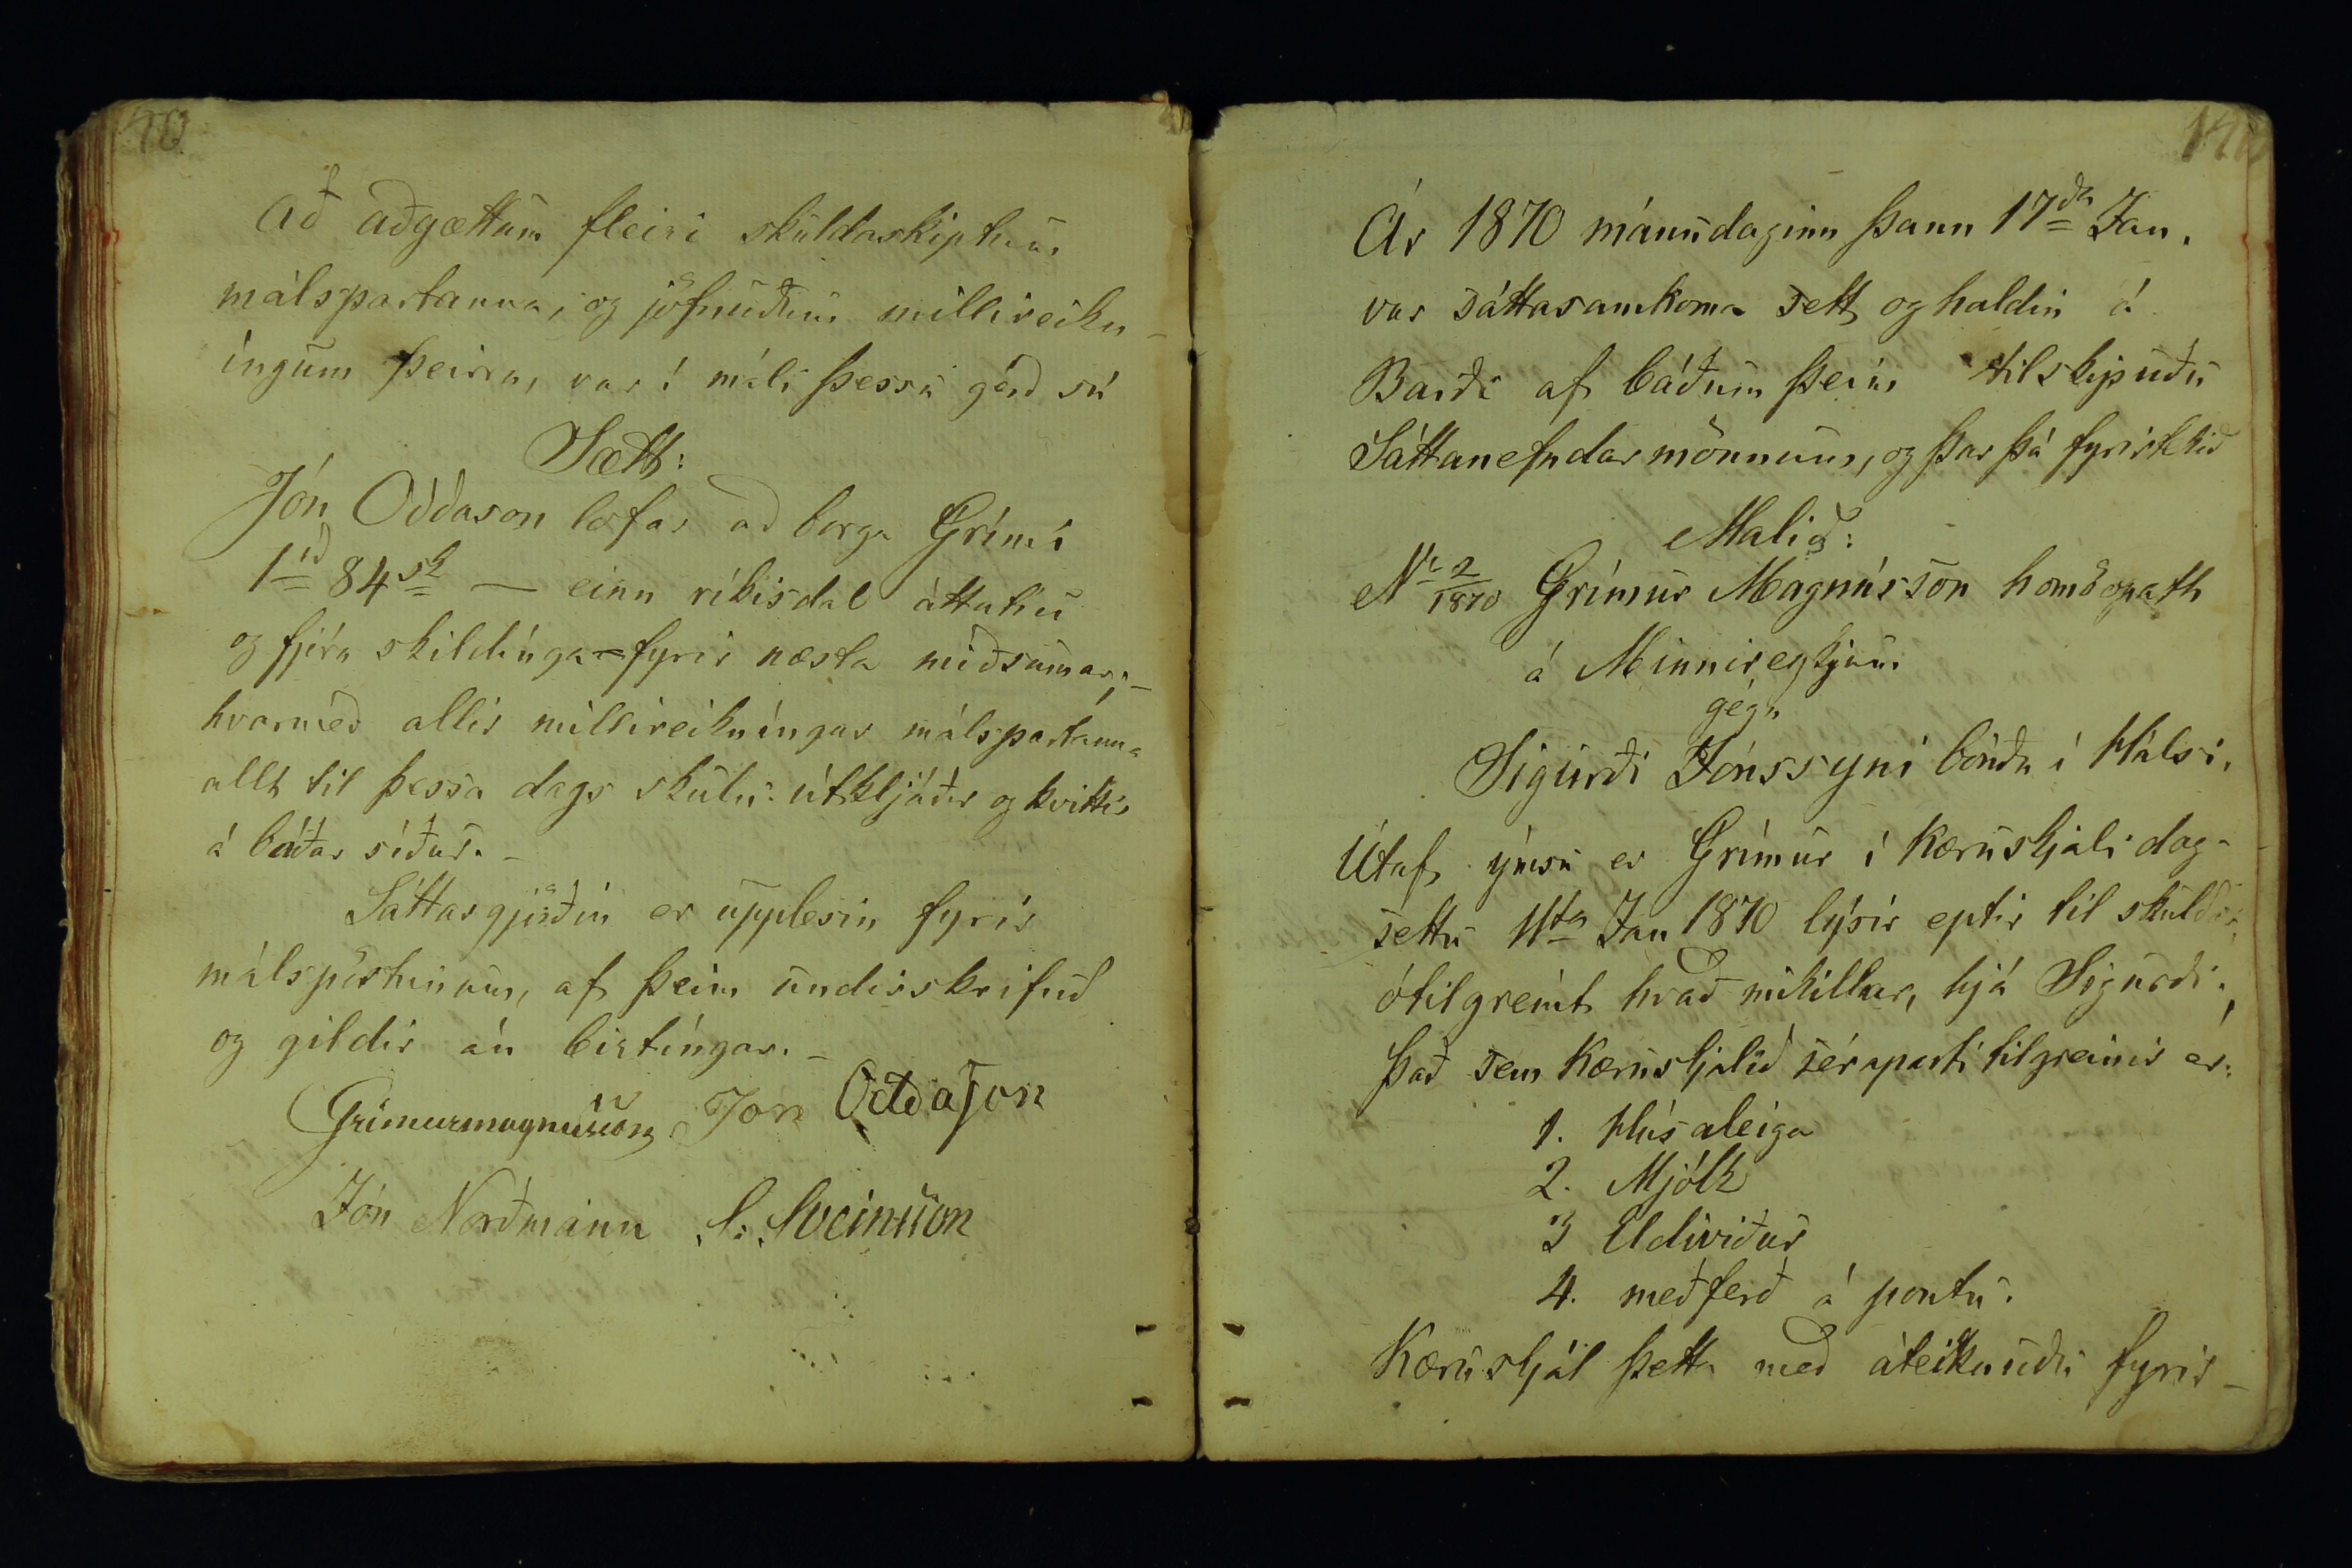 Að aðgættum fleiri skuldaskiptum
málspartanna, og jöfnuðum millireikn-
íngum þeirra, var í máli þessu gérð sú
Sætt:
Jón Oddason lofar að borga Grími
1rd 84sk — einn ríkisdal áttatíu
og fjóra skildínga – fyrir næsta miðsumar; –
hvarmeð allir millireikníngar málspartanna
allt til þessa dags skulu útkljáðir og kvittir
á báðar síður. –
Sáttargjörðin er upplesin fyrir
málspörtunum, af þeim undirskrifuð
og gildir án birtíngar. –
Grimurmagnusson Jon Oddason
Jón Norðmann S. Sveinsson
Ár 1870 mánudaginn þann 17da Jan.
var sáttasamkoma sett og haldin á
Barði af báðum þeim tilskipuðu
Sáttanefndarmönnum, og þar þá fyrirtekið
Malið:
Nr 2/1870 Grímur Magnússon homöopath
á Minnireykjum
gégn
Sigurði Jónssyni bónda í Hálsi.
Útaf ýmsu er Grímur í kæruskjali dag-
settu 11ta Jan 1870 lýsir eptir til skuldar,
ótilgreint hvað mikillar, hjá Sigurði.
Það sem kæruskjalið séraparti tilgreinir er:
1. Húsaleiga
2. Mjólk
3 Eldiviður
4. meðferð á pontu.
Kæruskjal þetta með áteiknuðu fyrir-